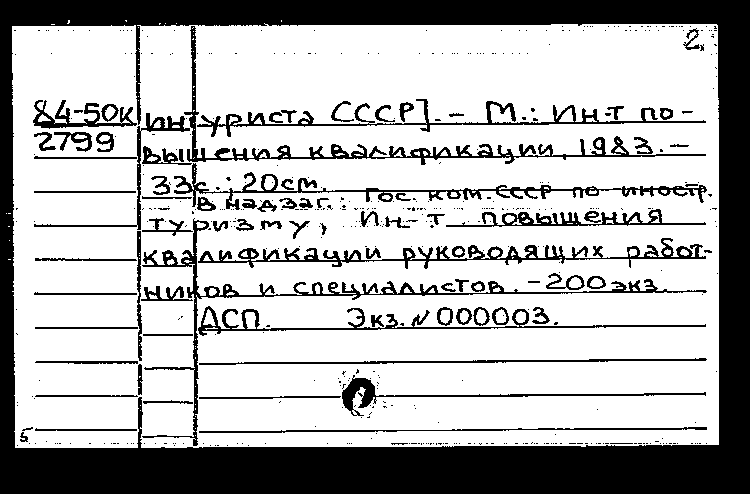 2.
84-50к интуриста СССР]. – М.: Ин-т по-
2799
вышения квалификации, 1983. –
33с.; 20см.
В надзаг.: Гос. ком. СССР по иностр.
туризму, Ин-т повышения
квалификации руководящих работ-
ников и специалистов. – 200 экз.
ДСП. Экз. № 000003.
5